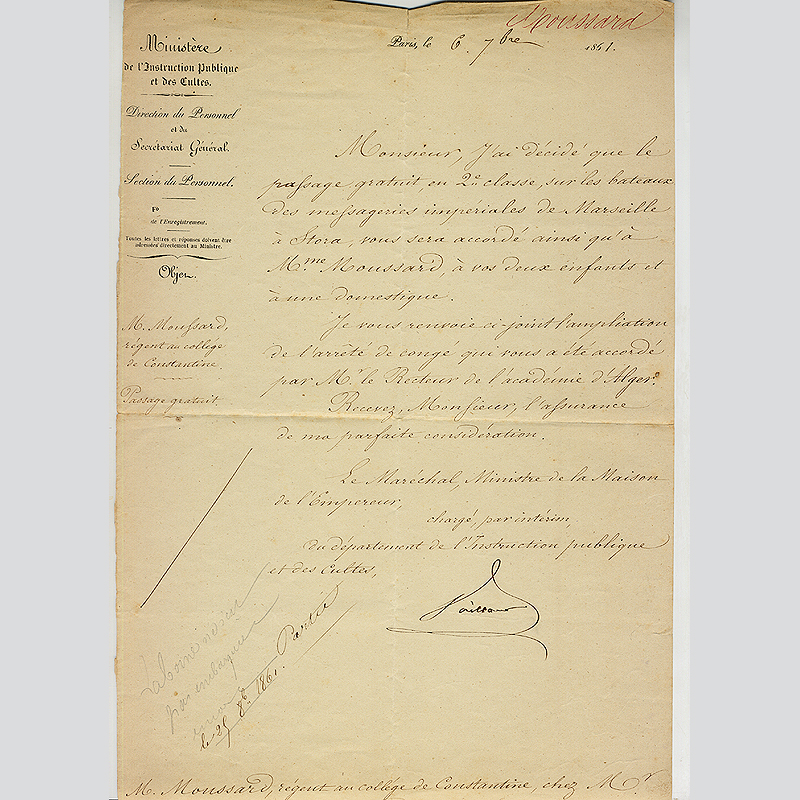 Moussard
Paris, le 6 7bre 1861.
Ministère
de l'Instruction Publique
et des Cultes.
Direction du Personnel
et du
Secrétariat Général.
Section du Personnel.
No
de l'Enregistrement.
Toutes les lettres et réponses doivent être
adressées directement au Ministre.
Objet
M. Moussard,
régent au collége
de Constantine
Passage gratuit.
Monsieur, J'ai décidé que le
passage gratuit, en 2e classe, sur les bateaux
des messageries impériales de Marseille
à Stora, vous sera accordé ainsi qu'à
Mme Moussard, à vos deux enfants et
à une domestique.
Je vous renvoie ci-joint l'ampliation
de l'arrêté de congé qui vous a été accordé
par Mr le Recteur de l'académie d'Alger.
Recevez, Monsieur, l'assurance
de ma parfaite considération.
Le Maréchal, Ministre de la Maison
de l'Empereur,
chargé, par intérim,
du département de l'Instruction publique
et des Cultes,
Vaillant
Partis
le 25 8bre 1861.
M. Moussard, régent au collége de Constantine, chez Mr